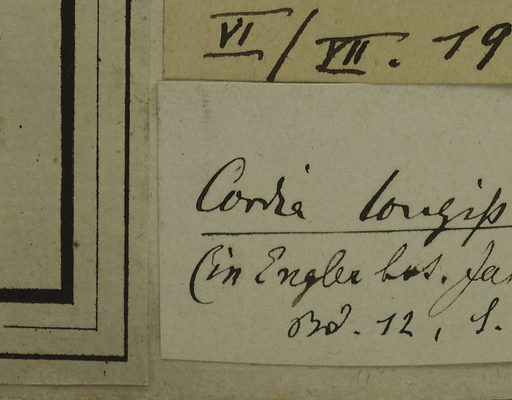 VI / VII. 19
Cordia longip
(in Engler bot. Jah
Bd. 12, S.